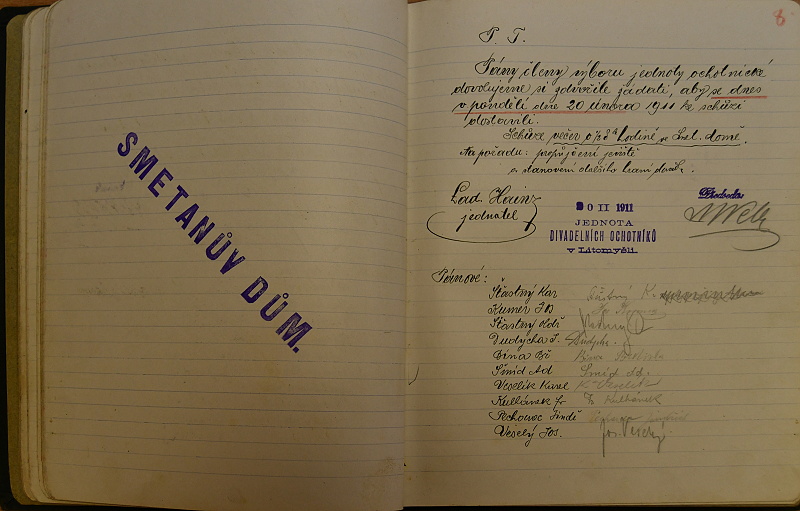 SMETANŮV DŮM.
8
P. T.
Pány členy výboru jednoty ochotnické
dovolujeme si zdvořile žádati, aby se dnes
v pondělí dne 20 února 1911 ke schůzi
dostavili.
Schůze večer o ½8 hodině, v Smet. domě.
Na pořadu: propůjčení jeviště
a stanovení dalšího hraní
Lad. Hainz
jednatel
20 II 1911
JEDNOTA
DIVADELNÍCH OCHOTNÍKŮ
v Litomyšli.
Předseda
Pánové:
Šťastný Kar Šťastný K.
Kumer Jos
Šťastný Oldř
Dudycha J. Dudycha
Bína Bř Bína
Šmíd Ad Šmíd Ad.
Veselík Karel K. Veselík
Kulhánek Fr Fr Kulhánek
Pechovec Jindř
Veselý Jos. Jos. Veselý